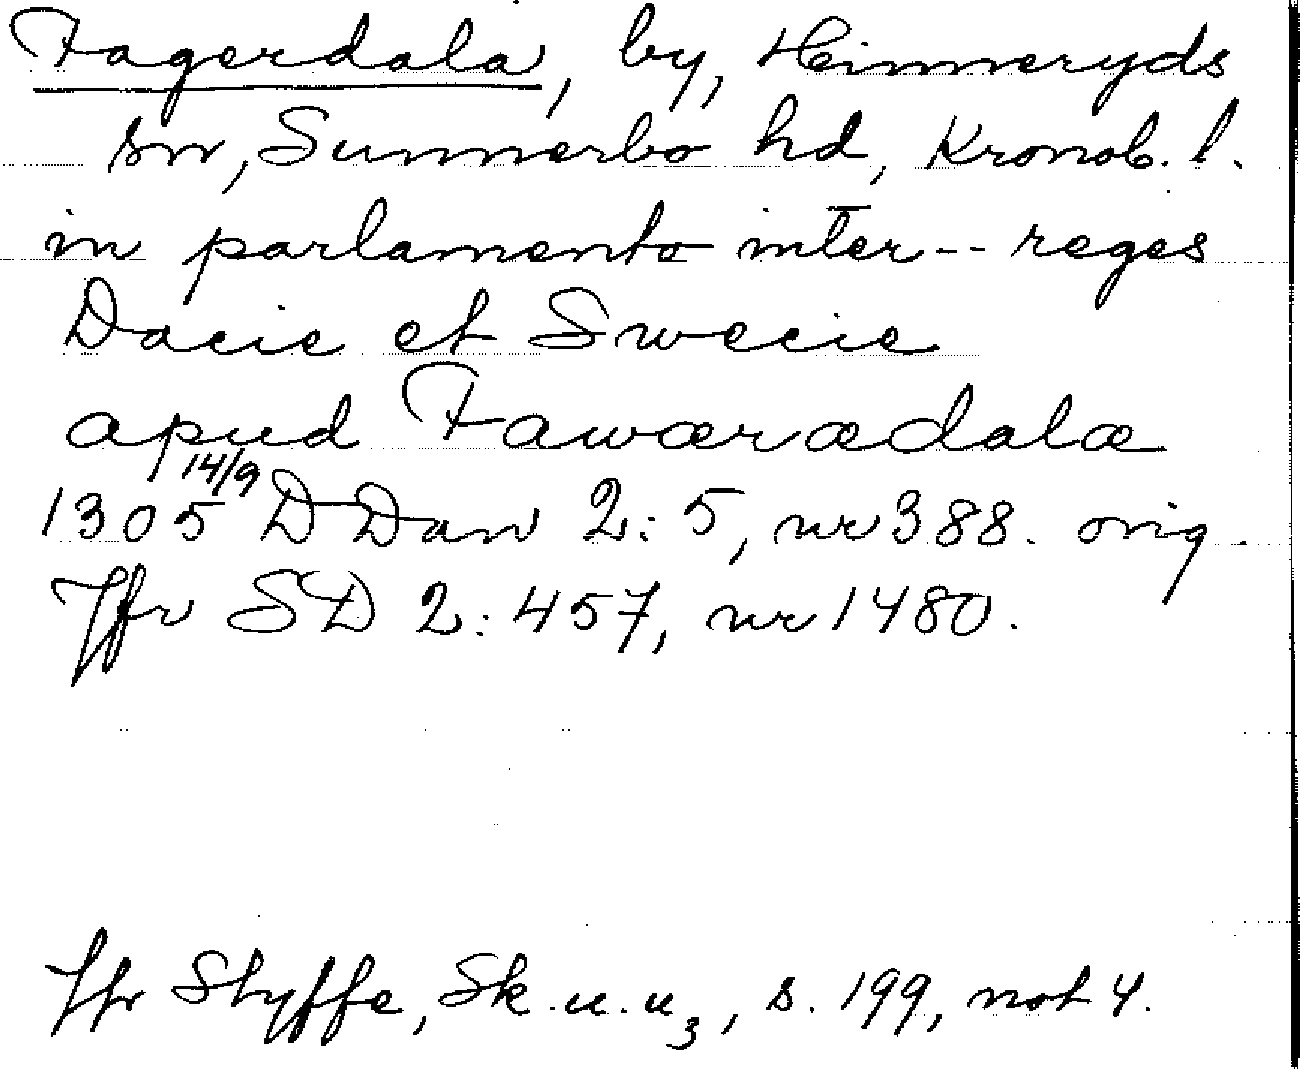 Fagerdala, by, Hinneryds
sn, Sunnerbo hd, Kronob. l.
in parlamento inter -- reges
Dacie et Swecie
apud Fawærædalæ
14/9
1305 DDan 2:5, nr 388. orig.
Jfr SD 2:457, nr 1480.
Jfr Styffe, Sk. u. u3, s. 199, not 4.